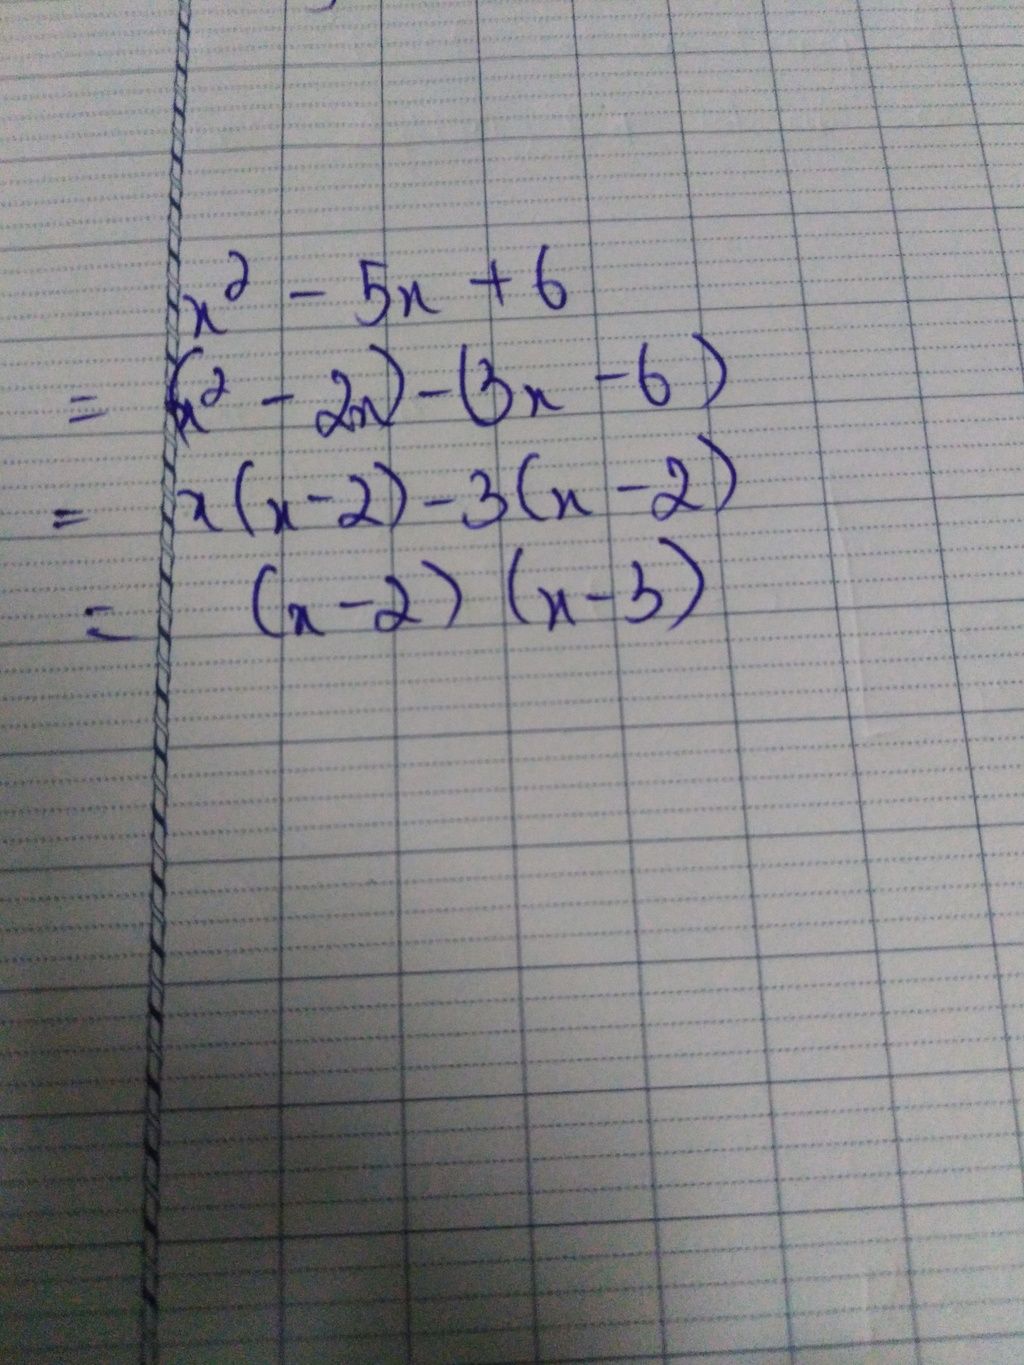 x² - 5x + 6
= (x² - 2x) - (3x - 6)
= x(x - 2) - 3(x - 2)
= (x - 2) (x - 3)